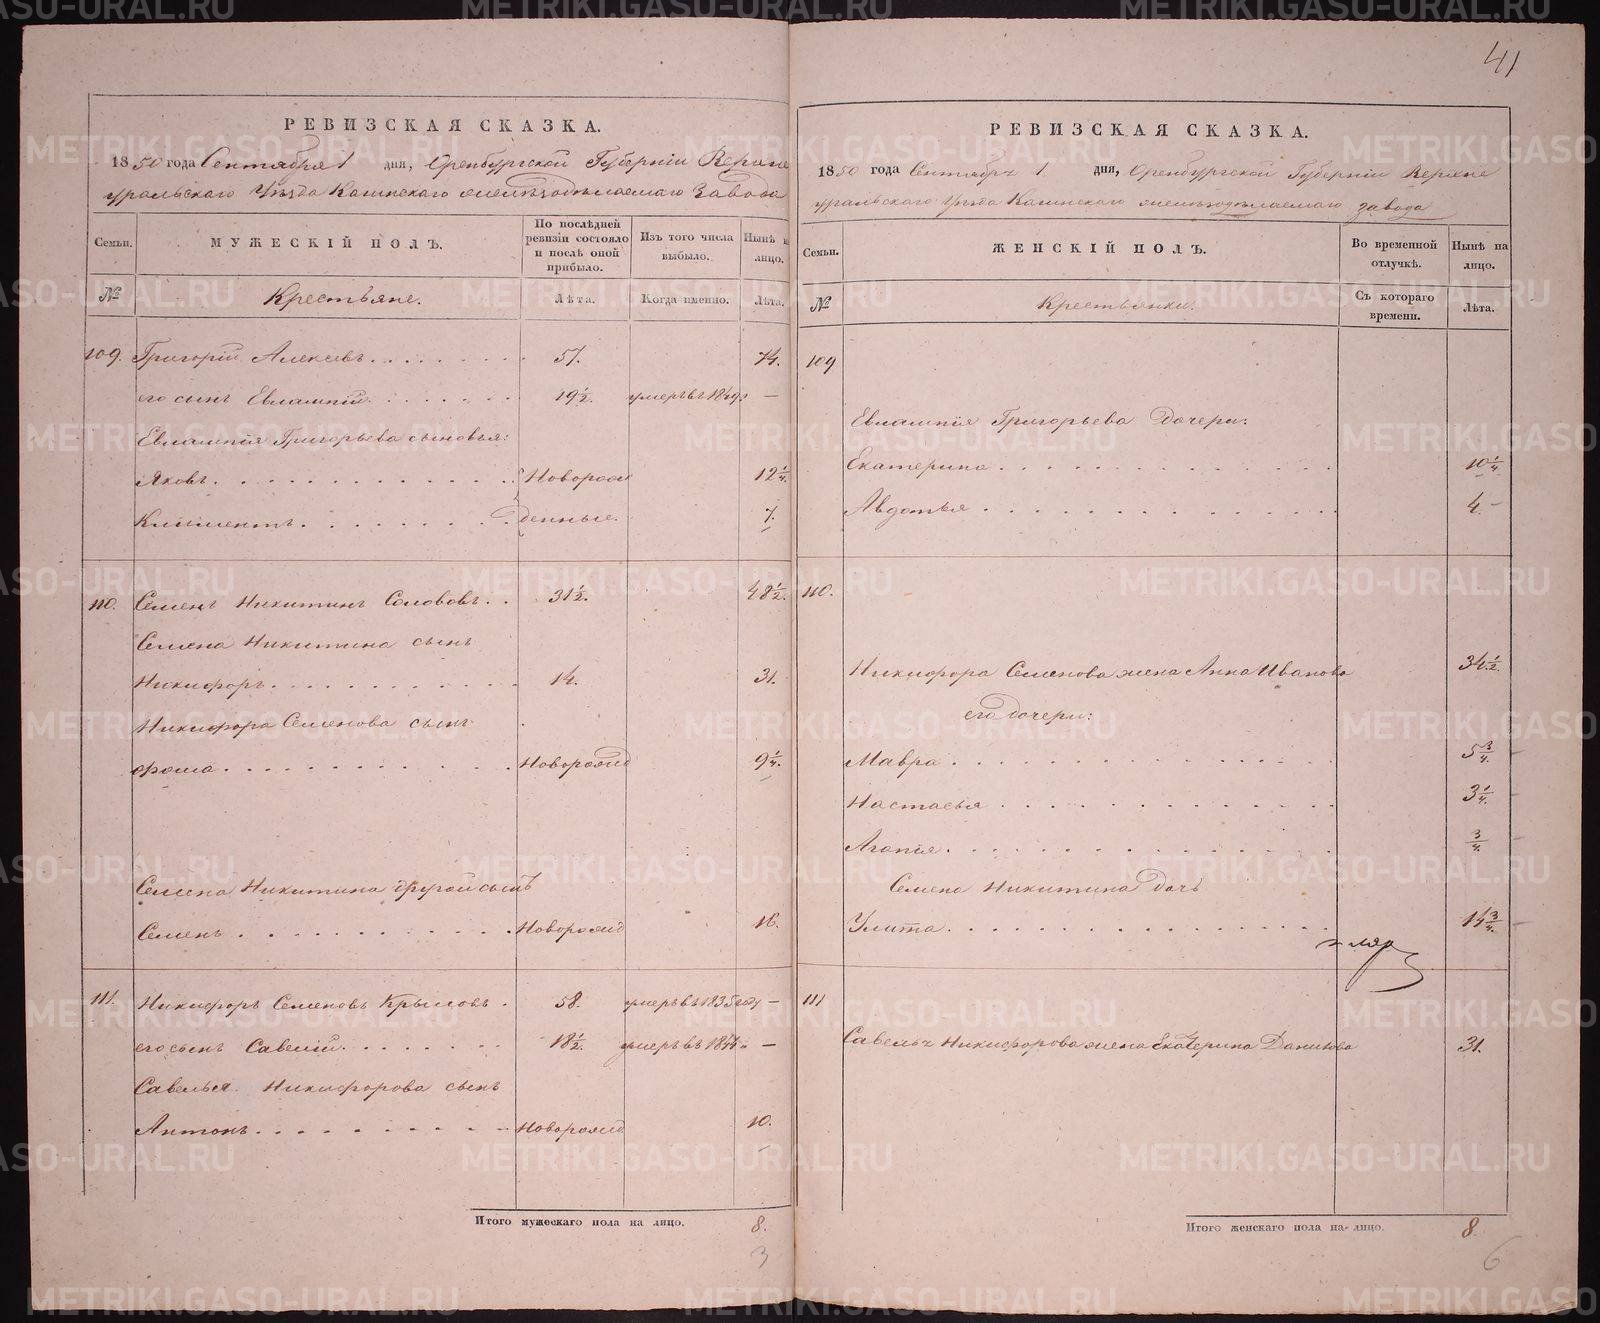 41
РЕВИЗСКАЯ СКАЗКА.
1850 года Сентября 1 дня, Оренбургской Губерніи Верхне
уральскаго Уѣзда Кагинскаго желѣзодѣлаемаго Завода
Семьи. МУЖЕСКІЙ ПОЛЪ. По послѣдней ревизіи состояло и послѣ оной прибыло. Изъ того числа выбыло. Нынѣ на лицо.
№ Крестьяне. Лѣта. Когда именно. Лѣта.
109. Григорій Алексѣевъ 57. 74.
его сынъ Евлампій 19½. умеръ въ —
Евлампія Григорьева сыновья:
Яковъ Новорож 12¼.
Климентъ денные. 7.
110. Семенъ Никитинъ Солововъ 31½. 48½.
Семена Никитина сынъ
Никифоръ 14. 31.
Никифора Семенова сынъ
Фома Новорожд 9¼.
Семена Никитина другой сынъ
Семенъ Новорожд 16.
111. Никифоръ Семеновъ Крыловъ 58. умеръ въ 1835 году —
его сынъ Савелій 18½. умеръ въ —
Савелья Никифорова сынъ
Антонъ Новорожд 10.
Итого мужескаго пола на лицо. 8.
3
РЕВИЗСКАЯ СКАЗКА.
1850 года Сентября 1 дня, Оренбургской Губерніи Верхне
уральскаго Уѣзда Кагинскаго желѣзодѣлаемаго завода
Семьи. ЖЕНСКІЙ ПОЛЪ. Во временной отлучкѣ. Нынѣ на лицо.
№ Крестьянки. Съ котораго времени. Лѣта.
109
Евлампія Григорьева дочери:
Екатерина 10¼
Авдотья 4
110.
Никифора Семенова жена Анна Иванова 34½.
его дочери:
Мавра 5¾.
Настасья 3¼.
Агапія ¾.
Семена Никитина дочь
Улита 14¾.
111
Савелья Никифорова жена Екатерина Данилова 31.
Итого женскаго пола на-лицо. 8.
6
METRIKI.GASO-URAL.RU